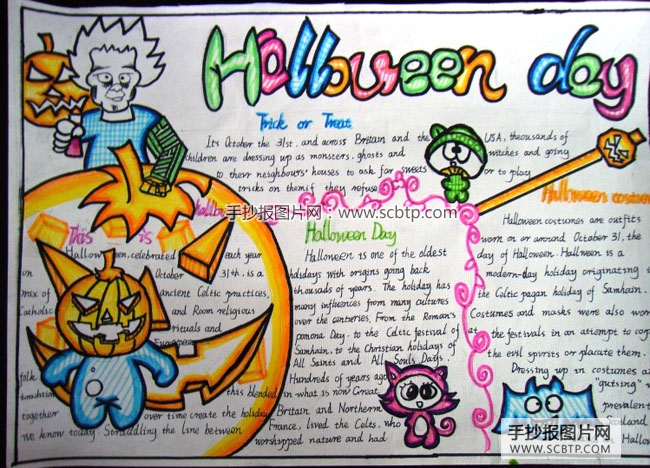 Halloween day
Trick or Treat
It's October the 31st, and across Britain and the USA, theousands of
children are dressing up as monsters, ghosts and witches and going
to their neighbours' houses to ask for sweets or to play
tricks on them if they refuse
手抄报图片网：www.scbtp.com
This is
Halloween, celebrated each year
on October 31th, is a
mix of ancient Celtic practices,
Catholic and Room religious
rituals and
European
folk
traditions this blended
together over time create the holiday
we know today. Straddling the line between
Halloween Day
Halloween is one of the oldest
holidays with origins going back
thousads of years. The holiday has
many influences from many cultures
over the centeries. From the Roman's
pomona Day, to the Celtic festival of
Samhain, to the Christian holidays of
All Saints and All Souls Days.
Hundreds of years ago
in what is now Great
Britain and Northern
France, lived the Celts, who
worshipped nature and had
Halloween costum
Halloween costumes are outfits
worn on or around October 31, the
day of Halloween. Halloween is a
modern-day holiday originating
the Celtic pagan holiday of Samhain.
Costumes and masks were also wor
at the festivals in an attempt to cop
the evil spirits or placate them.
Dressing up in costumes a
"guising"
prevalent
手抄报图片网
WWW.SCBTP.COM